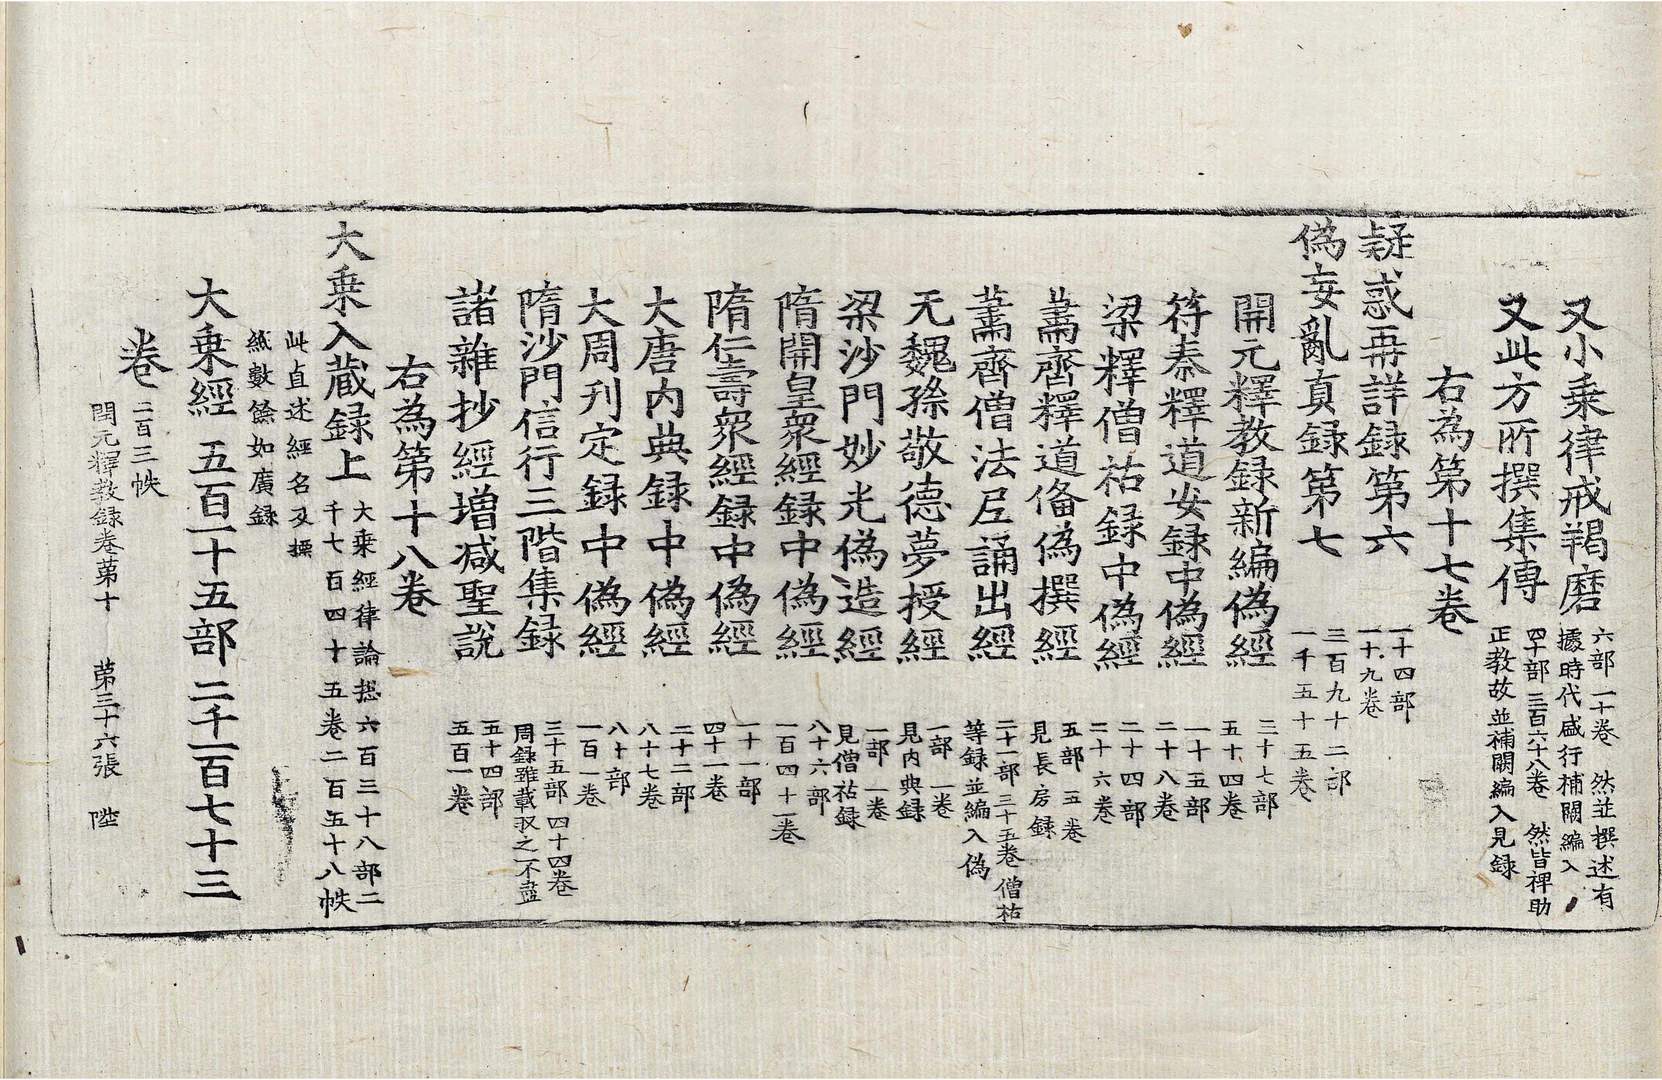 又小乗律戒羯磨 六部一十卷 然並撰述有
據時代盛行補闕編入
又此方所撰集傳 四十部三百六十八卷 然皆裨助
正教故並補闕編入見錄
右為第十七卷
疑惑再詳録第六 一十四部
一十九卷
偽妄亂真録第七 三百九十二部
一千五十五卷
開元釋教録新編偽經 三十七部
五十四卷
符秦釋道安録中偽經 一十五部
二十八卷
梁釋僧祐録中偽經 二十四部
二十六卷
蕭齊釋道俻偽撰經 五部五卷
見長房録
蕭齊僧法尼誦出經 二十一部三十五卷僧祐
等録並編入偽
元魏孫敬德夢授經 一部一卷
見内典録
梁沙門妙光偽造經 一部一卷
見僧祐録
隋開皇衆經録中偽經 八十六部
一百四十一卷
隋仁壽衆經録中偽經 一十一部
四十一卷
大唐内典録中偽經 二十二部
八十七卷
大周刊定録中偽經 八十部
一百一卷
隋沙門信行三階集録 三十五部四十四卷
周録雖載収之不盡
諸雜抄經增減聖說 五十四部
五百一卷
右為第十八卷
大乗入蔵録上 大乗經律論揔六百三十八部二
千七百四十五卷二百五十八帙
此直述經名及摽
紙數餘如廣録
大乗經 五百一十五部 二千一百七十三
卷 二百三帙
開元釋教録卷第十 第三十六張 陞